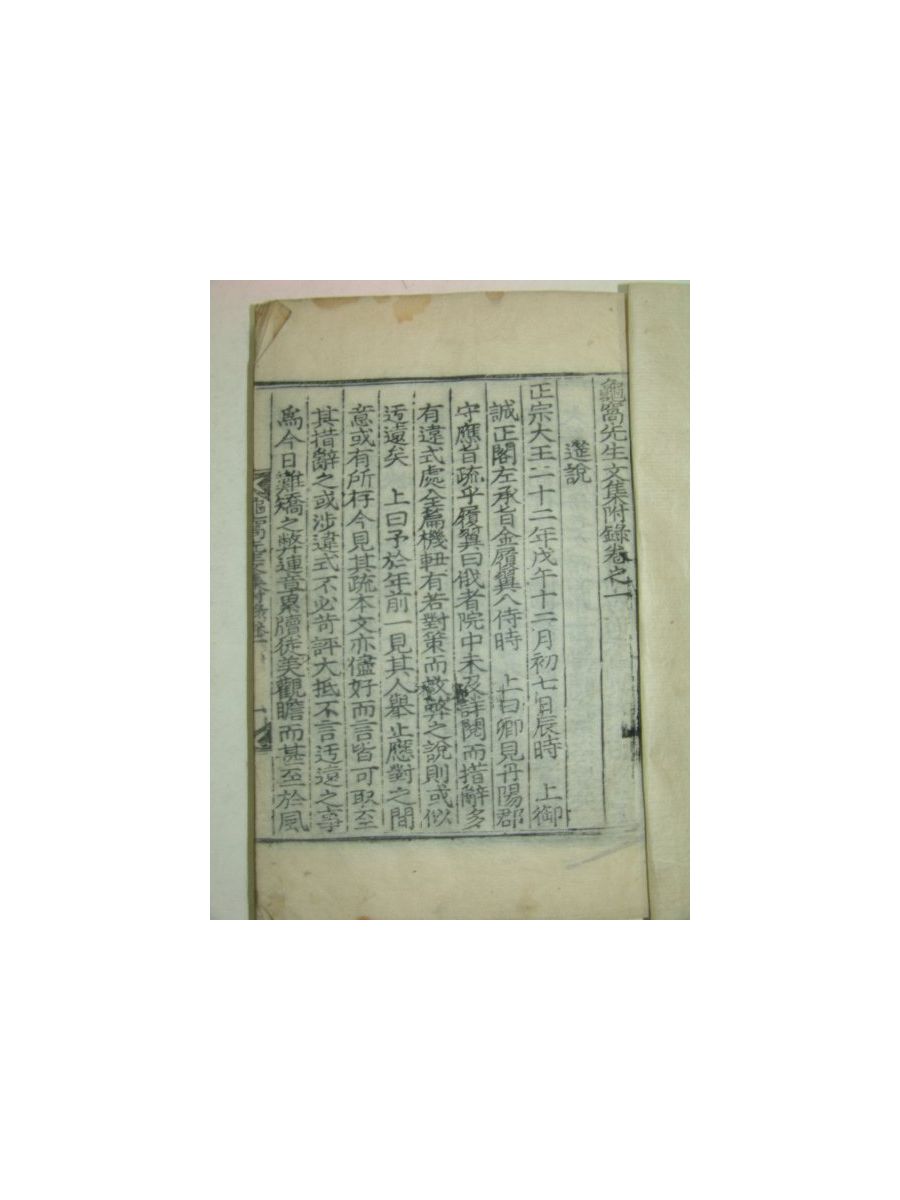 龜窩先生文集附錄卷之一
筵說
正宗大王二十二年戊午十二月初七日辰時 上御
誠正閣左承旨金履翼入侍時 上曰卿見丹陽郡
守應旨疏乎履翼曰俄者院中未及詳閱而措辭多
有違式處全篇機軸有若對策而救弊之說則或似
迂遠矣 上曰予於年前一見其人舉止應對之間
意或有所存今見其疏本文亦儘好而言皆可取至
其措辭之或涉違式不必苛評大抵不言迂遠之事
爲今日難矯之弊連章累牘徒美觀瞻而甚至於風